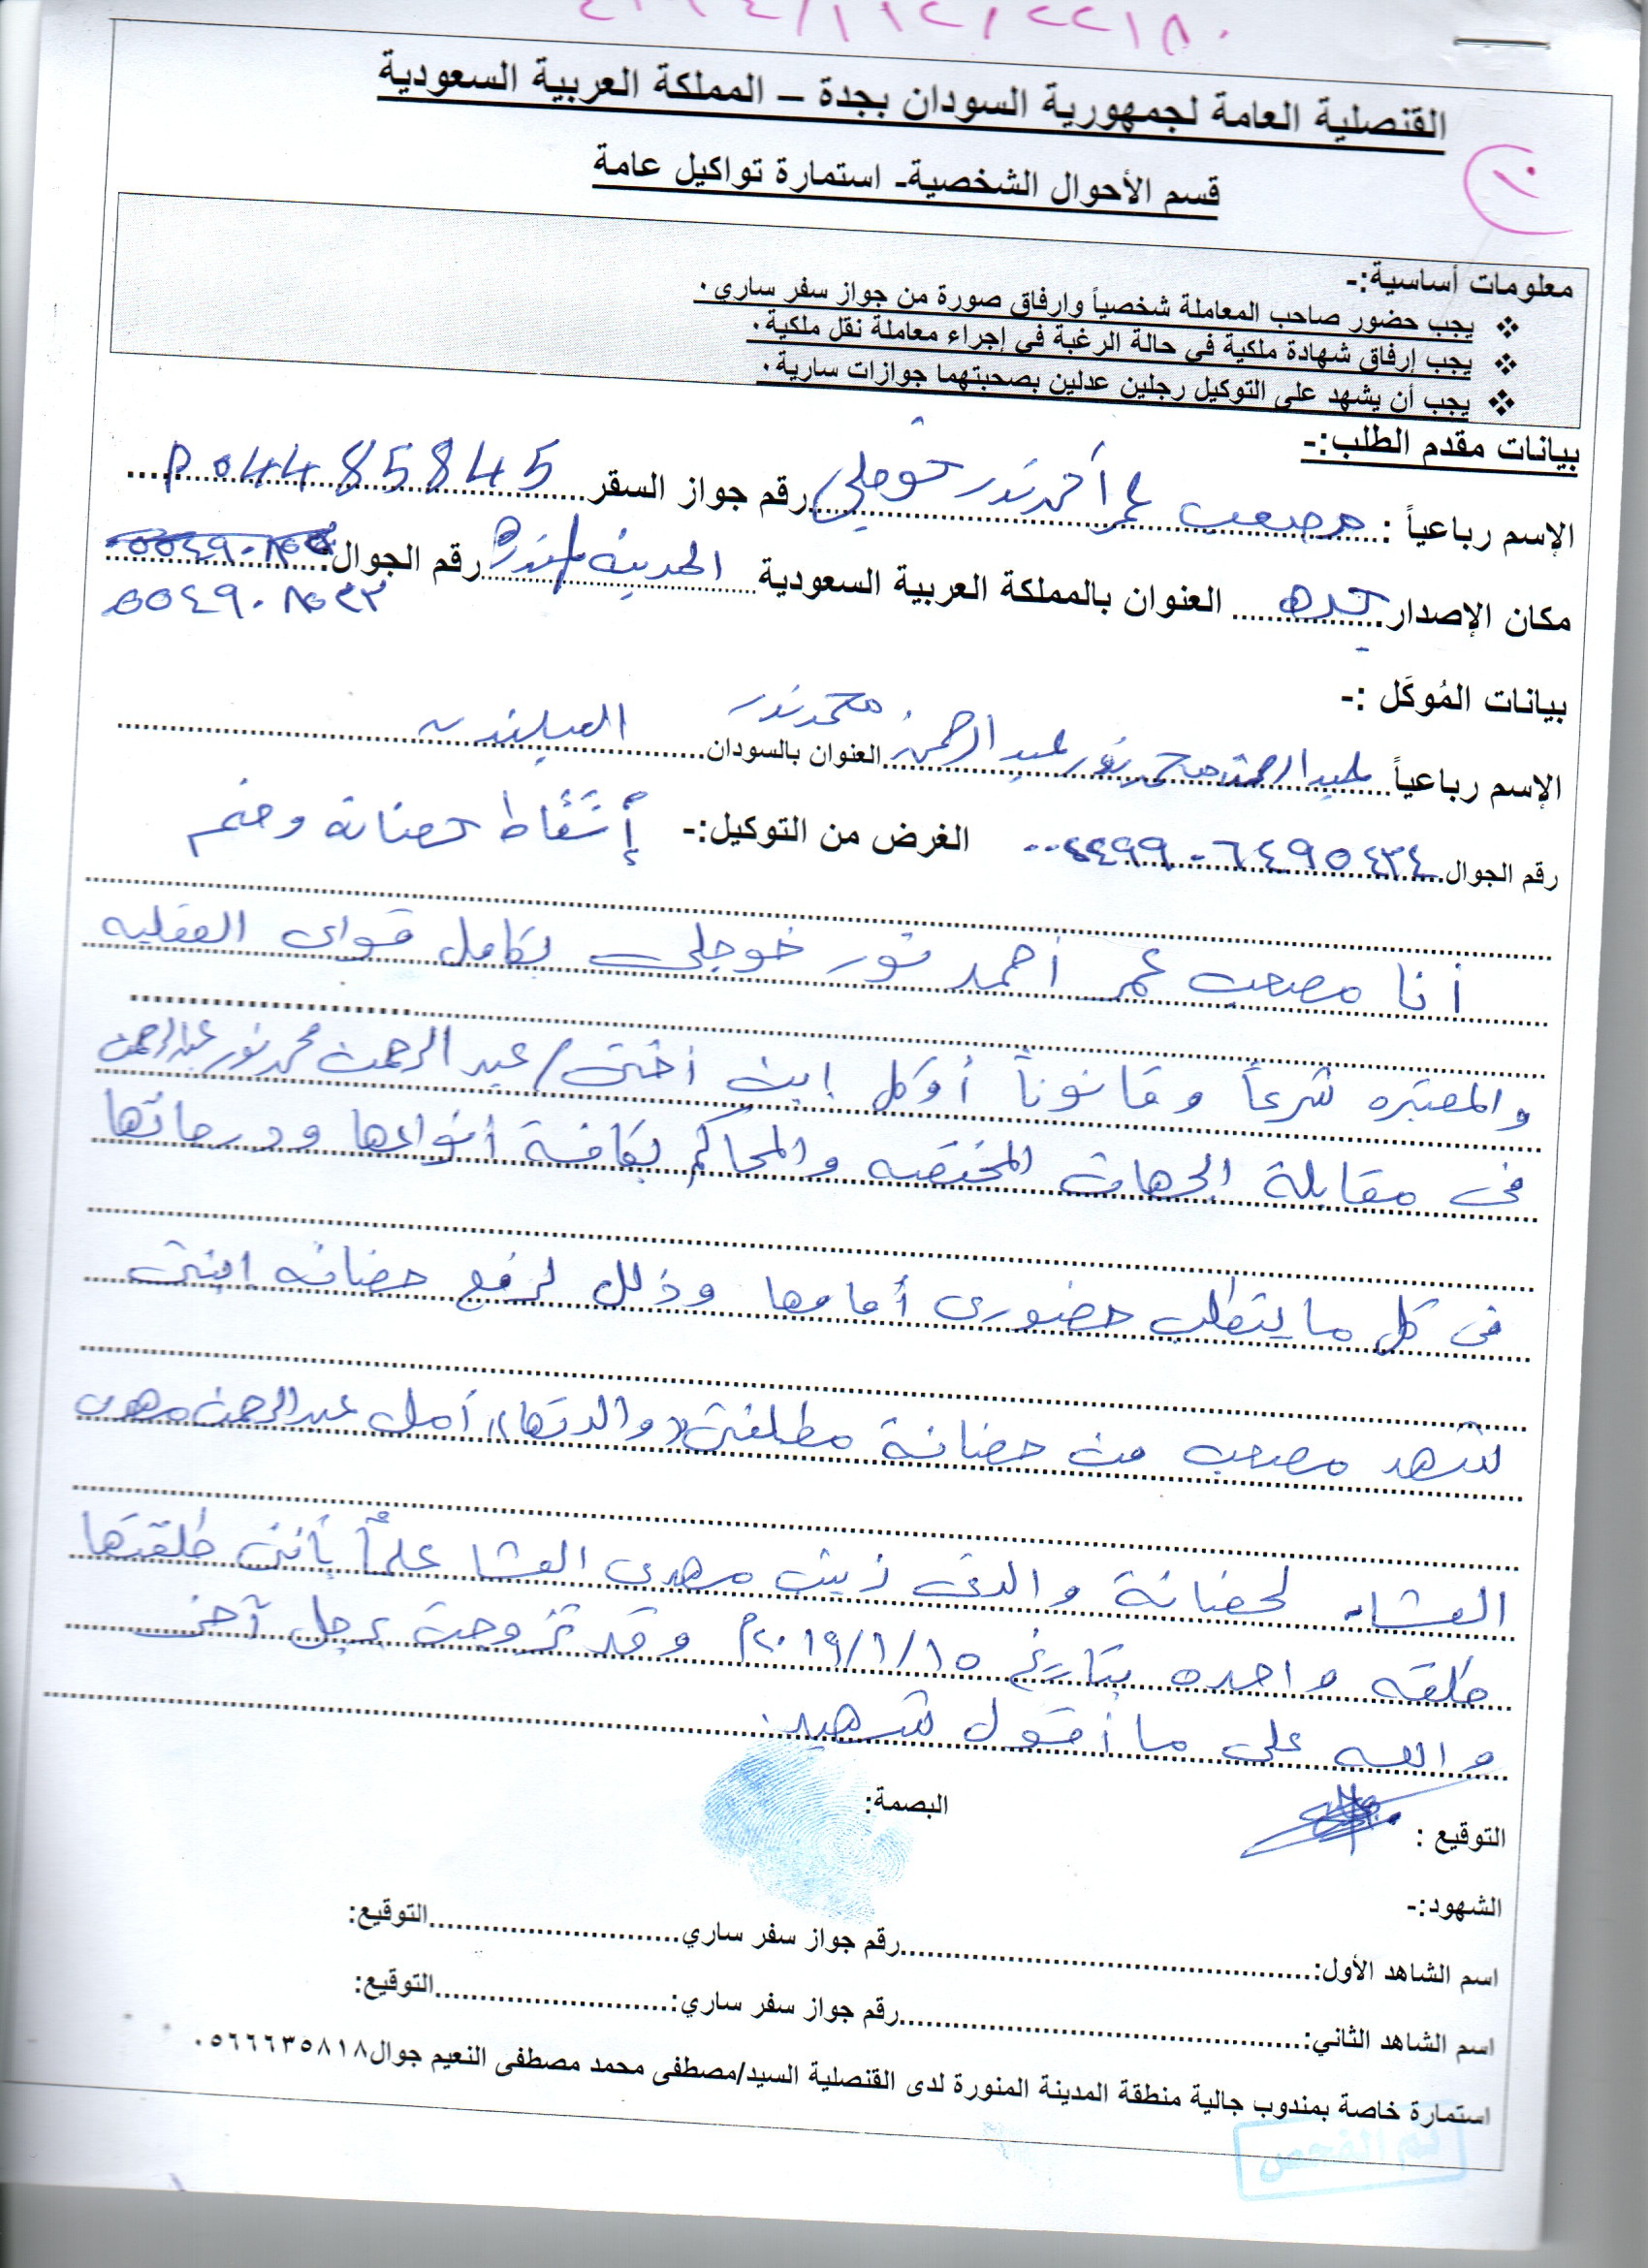 القنصلية العامة لجمهورية السودان بجدة – المملكة العربية السعودية
قسم الأحوال الشخصية- استمارة تواكيل عامة
معلومات أساسية:-
❖ يجب حضور صاحب المعاملة شخصياً وارفاق صورة من جواز سفر ساري.
❖ يجب إرفاق شهادة ملكية في حالة الرغبة في إجراء معاملة نقل ملكية.
❖ يجب أن يشهد على التوكيل رجلين عدلين بصحبتهما جوازات سارية.
بيانات مقدم الطلب:-
الإسم رباعياً : مصعب عمر أحمد نور خوجلي رقم جواز السقر P04485845
مكان الإصدار جده العنوان بالمملكة العربية السعودية المدينة المنورة رقم الجوال
٠٥٤٩٠٨٥٣٣
بيانات المُوكَل :-
الإسم رباعياً عبدالرحمن محمد نور عبدالرحمن محمد نور العنوان بالسودان
رقم الجوال الغرض من التوكيل:- إسقاط حضانة وضم
أنا مصعب عمر أحمد نور خوجلى بكامل قواى العقليه
والمعتبره شرعاً وقانوناً أوكل ابن أختى/ عبد الرحمن محمد نور عبدالرحمن
فى مقابلة الجهات المختصه والمحاكم بكافة أنواعها ودرجاتها
فى كل ما يتطلب حضورى أمامها وذلك لرفع حضانه ابنتى
شهد مصعب من حضانة مطلقتى (والدتها) أمل عبدالرحمن مهدى
العشا لحضانة والدتى زينب مهدى العشا علماً بأننى طلقتها
طلقه واحده بتاريخ ٢٠١٩/١/١٥م وقد تزوجت برجل آخر
والله على ما أقول شهيد.
التوقيع : البصمة:
الشهود:-
اسم الشاهد الأول: رقم جواز سفر ساري التوقيع:
اسم الشاهد الثاني: رقم جواز سفر ساري: التوقيع:
استمارة خاصة بمندوب جالية منطقة المدينة المنورة لدى القنصلية السيد/مصطفى محمد مصطفى النعيم جوال٠٥٦٦٦٣٥٨١٨
تم الفحص